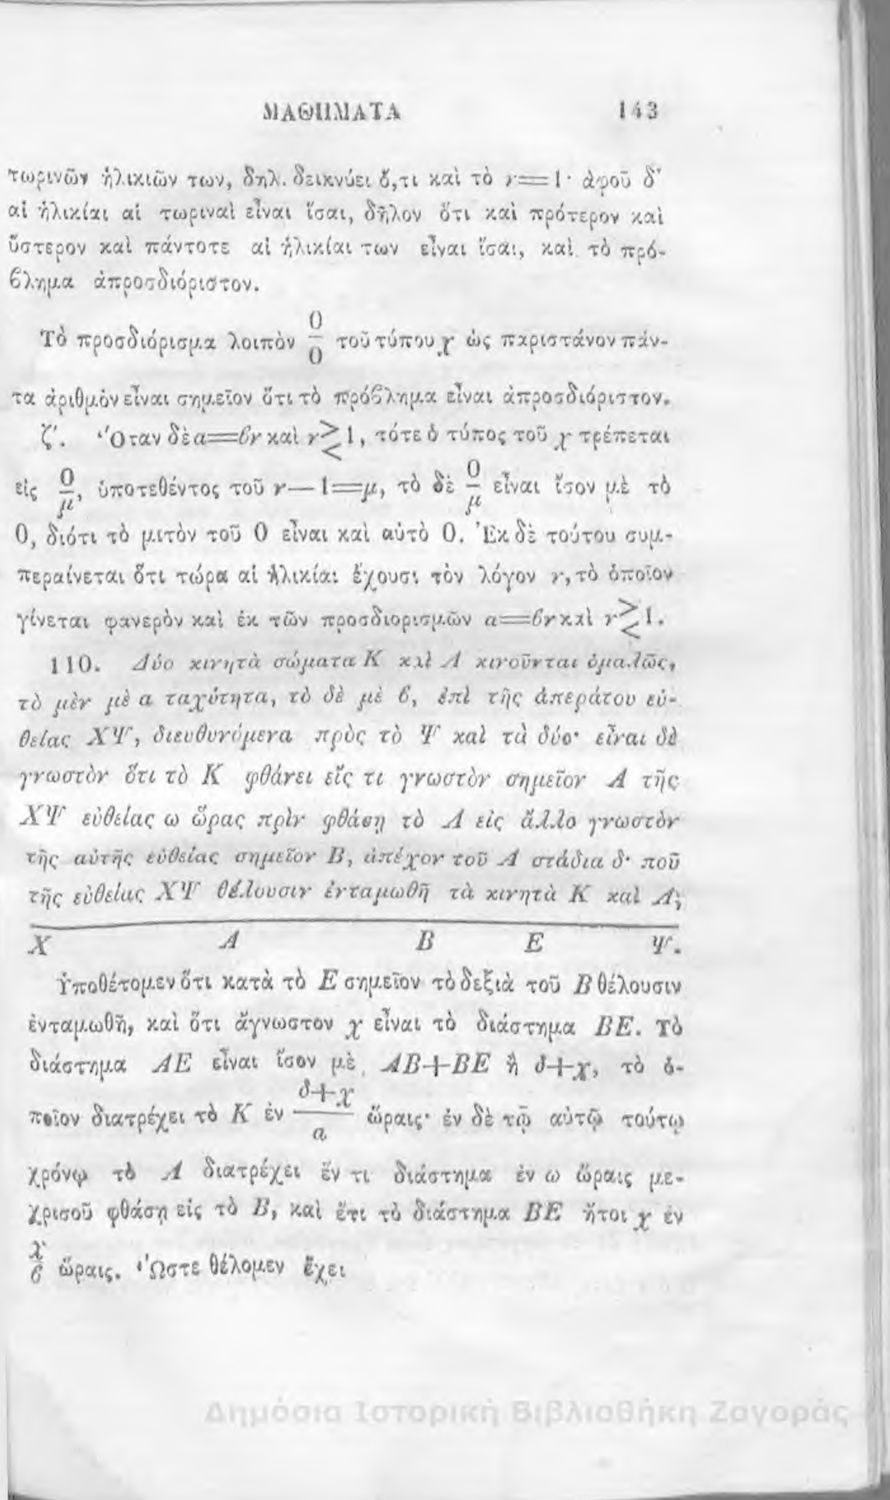 ΜΑΘΗΜΑΤΑ 143
τωρινῶν ἡλικιῶν των, δηλ. δεικνύει ὅ,τι καὶ τὸ ν=1· ἀφοῦ δ'
αἱ ἡλικίαι αἱ τωριναὶ εἶναι ἴσαι, δῆλον ὅτι καὶ πρότερον καὶ
ὕστερον καὶ πάντοτε αἱ ἡλικίαι των εἶναι ἴσαι, καὶ τὸ πρό-
βλημα ἀπροσδιόριστον.
Τὸ προσδιόρισμα λοιπὸν 0/0 τοῦ τύπου χ ὡς παριστάνον πάν-
τα ἀριθμὸν εἶναι σημεῖον ὅτι τὸ πρόβλημα εἶναι ἀπροσδιόριστον.
ζ'. Ὅταν δὲ α=βν καὶ ν≷1, τότε ὁ τύπος τοῦ χ τρέπεται
εἰς 0/μ, ὑποτεθέντος τοῦ ν—1=μ, τὸ δὲ 0/μ εἶναι ἴσον μὲ τὸ
0, διότι τὸ μιτὸν τοῦ 0 εἶναι καὶ αὐτὸ 0. Ἐκ δὲ τούτου συμ-
περαίνεται ὅτι τώρα αἱ ἡλικίαι ἔχουσι τὸν λόγον ν, τὸ ὁποῖον
γίνεται φανερὸν καὶ ἐκ τῶν προσδιορισμῶν α=βν καὶ ν≷1.
110. Δύο κινητὰ σώματα Κ καὶ Λ κινοῦνται ὁμαλῶς,
τὸ μὲν μὲ α ταχύτητα, τὸ δὲ μὲ β, ἐπὶ τῆς ἀπεράτου εὐ-
θείας ΧΨ, διευθυνόμενα πρὸς τὸ Ψ καὶ τὰ δύο· εἶναι δὲ
γνωστὸν ὅτι τὸ Κ φθάνει εἴς τι γνωστὸν σημεῖον Α τῆς
ΧΨ εὐθείας ω ὥρας πρὶν φθάσῃ τὸ Λ εἰς ἄλλο γνωστὸν
τῆς αὐτῆς εὐθείας σημεῖον Β, ἀπέχον τοῦ Α στάδια δ· ποῦ
τῆς εὐθείας ΧΨ θέλουσιν ἐνταμωθῆ τὰ κινητὰ Κ καὶ Λ;
Χ Α Β Ε Ψ.
Ὑποθέτομεν ὅτι κατὰ τὸ Ε σημεῖον τὸ δεξιὰ τοῦ Β θέλουσιν
ἐνταμωθῆ, καὶ ὅτι ἄγνωστον χ εἶναι τὸ διάστημα ΒΕ. Τὸ
διάστημα ΑΕ εἶναι ἴσον μὲ ΑΒ+ΒΕ ἢ δ+χ, τὸ ὁ-
ποῖον διατρέχει τὸ Κ ἐν (δ+χ)/α ὥραις· ἐν δὲ τῷ αὐτῷ τούτῳ
χρόνῳ τὸ Λ διατρέχει ἔν τι διάστημα ἐν ω ὥραις με-
χρισοῦ φθάσῃ εἰς τὸ Β, καὶ ἔτι τὸ διάστημα ΒΕ ἤτοι χ ἐν
χ/β ὥραις. Ὥστε θέλομεν ἔχει
Δημόσια Ιστορική Βιβλιοθήκη Ζαγοράς